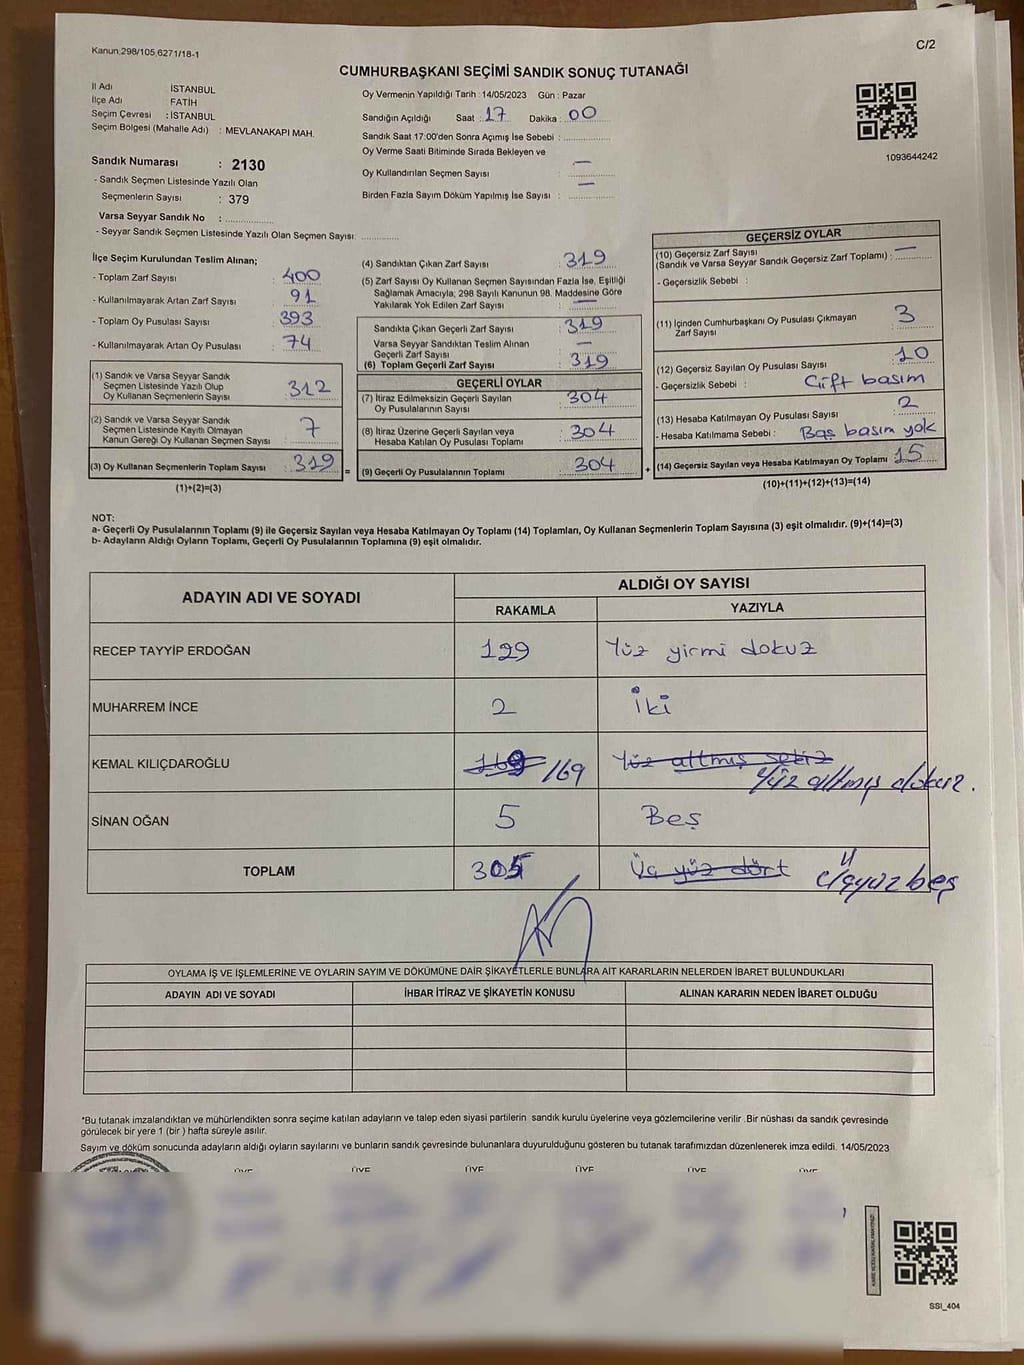 Kanun 298/105,6271/18-1
C/2
CUMHURBAŞKANI SEÇİMİ SANDIK SONUÇ TUTANAĞI
İl Adı İSTANBUL
İlçe Adı FATİH
Seçim Çevresi : İSTANBUL
Seçim Bölgesi (Mahalle Adı) : MEVLANAKAPI MAH.
Sandık Numarası : 2130
- Sandık Seçmen Listesinde Yazılı Olan
Seçmenlerin Sayısı : 379
Varsa Seyyar Sandık No :
- Seyyar Sandık Seçmen Listesinde Yazılı Olan Seçmen Sayısı:
Oy Vermenin Yapıldığı Tarih : 14/05/2023 Gün : Pazar
Sandığın Açıldığı Saat : 17 Dakika : 00
Sandık Saat 17:00'den Sonra Açımış İse Sebebi :
Oy Verme Saati Bitiminde Sırada Bekleyen ve
Oy Kullandırılan Seçmen Sayısı : —
Birden Fazla Sayım Döküm Yapılmış İse Sayısı : —
1093644242
İlçe Seçim Kurulundan Teslim Alınan;
- Toplam Zarf Sayısı : 400
- Kullanılmayarak Artan Zarf Sayısı : 91
- Toplam Oy Pusulası Sayısı : 393
- Kullanılmayarak Artan Oy Pusulası : 74
(1) Sandık ve Varsa Seyyar Sandık
Seçmen Listesinde Yazılı Olup
Oy Kullanan Seçmenlerin Sayısı : 312
(2) Sandık ve Varsa Seyyar Sandık
Seçmen Listesinde Kayıtlı Olmayan
Kanun Gereği Oy Kullanan Seçmen Sayısı : 7
(3) Oy Kullanan Seçmenlerin Toplam Sayısı : 319 =
(1)+(2)=(3)
(4) Sandıktan Çıkan Zarf Sayısı : 319
(5) Zarf Sayısı Oy Kullanan Seçmen Sayısından Fazla İse, Eşitliği
Sağlamak Amacıyla; 298 Sayılı Kanunun 98. Maddesine Göre
Yakılarak Yok Edilen Zarf Sayısı : —
Sandıkta Çıkan Geçerli Zarf Sayısı : 319
Varsa Seyyar Sandıktan Teslim Alınan
Geçerli Zarf Sayısı : —
(6) Toplam Geçerli Zarf Sayısı : 319
GEÇERLİ OYLAR
(7) İtiraz Edilmeksizin Geçerli Sayılan
Oy Pusulalarının Sayısı : 304
(8) İtiraz Üzerine Geçerli Sayılan veya
Hesaba Katılan Oy Pusulası Toplamı : 304
(9) Geçerli Oy Pusulalarının Toplamı : 304 +
GEÇERSİZ OYLAR
(10) Geçersiz Zarf Sayısı
(Sandık ve Varsa Seyyar Sandık Geçersiz Zarf Toplamı) : —
- Geçersizlik Sebebi :
(11) İçinden Cumhurbaşkanı Oy Pusulası Çıkmayan
Zarf Sayısı : 3
(12) Geçersiz Sayılan Oy Pusulası Sayısı : 10
- Geçersizlik Sebebi : Çift basım
(13) Hesaba Katılmayan Oy Pusulası Sayısı : 2
- Hesaba Katılmama Sebebi : Baş basım yok
(14) Geçersiz Sayılan veya Hesaba Katılmayan Oy Toplamı : 15
(10)+(11)+(12)+(13)=(14)
NOT:
a- Geçerli Oy Pusulalarının Toplamı (9) ile Geçersiz Sayılan veya Hesaba Katılmayan Oy Toplamı (14) Toplamları, Oy Kullanan Seçmenlerin Toplam Sayısına (3) eşit olmalıdır. (9)+(14)=(3)
b- Adayların Aldığı Oyların Toplamı, Geçerli Oy Pusulalarının Toplamına (9) eşit olmalıdır.
ADAYIN ADI VE SOYADI ALDIĞI OY SAYISI
RAKAMLA YAZIYLA
RECEP TAYYİP ERDOĞAN 129 Yüz yirmi dokuz
MUHARREM İNCE 2 İki
KEMAL KILIÇDAROĞLU 169 /169 Yüz altmış sekiz Yüz altmış dokuz.
SİNAN OĞAN 5 Beş
TOPLAM 305 Üç yüz dört Üçyüz beş
OYLAMA İŞ VE İŞLEMLERİNE VE OYLARIN SAYIM VE DÖKÜMÜNE DAİR ŞİKAYETLERLE BUNLARA AİT KARARLARIN NELERDEN İBARET BULUNDUKLARI
ADAYIN ADI VE SOYADI İHBAR İTİRAZ VE ŞİKAYETİN KONUSU ALINAN KARARIN NEDEN İBARET OLDUĞU
*Bu tutanak imzalandıktan ve mühürlendikten sonra seçime katılan adayların ve talep eden siyasi partilerin sandık kurulu üyelerine veya gözlemcilerine verilir. Bir nüshası da sandık çevresinde
görülecek bir yere 1 (bir) hafta süreyle asılır.
Sayım ve döküm sonucunda adayların aldığı oyların sayılarını ve bunların sandık çevresinde bulunanlara duyurulduğunu gösteren bu tutanak tarafımızdan düzenlenerek imza edildi. 14/05/2023
ÜYE ÜYE ÜYE ÜYE ÜYE ÜYE
SSI_404